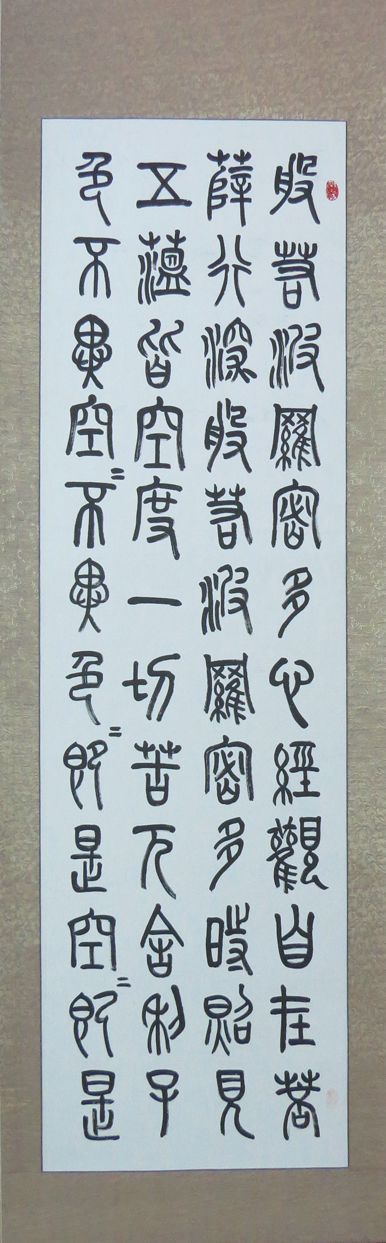 般若波羅密多心經觀自在菩
薩行深般若波羅密多時照見
五蘊皆空度一切苦厄舍利子
色不異空〻不異色〻即是空〻即是